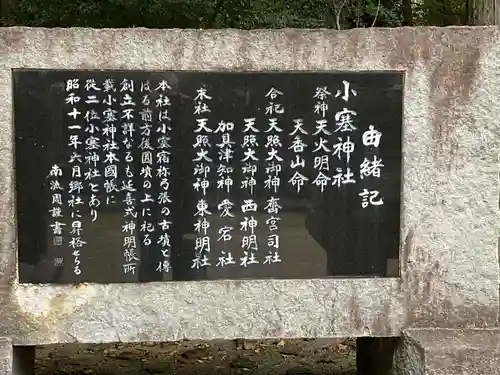 由緒記
小塞神社
祭神 天火明命
天香山命
合祀 天照大御神 齋宮司社
天照大御神 西神明社
加具津知神 愛宕社
末社 天照大御神 東神明社
本社は小塞宿祢弓張の古墳と傳
はる前方後圓墳の上に祀る
創立不詳なるも延喜式神明帳所
載小塞神社本國帳に
從二位小塞神社とあり
昭和十一年六月郷社に昇格せらる
南流周謹書